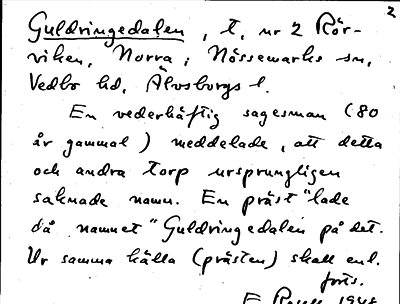 2
Guldringedalen, t. nr 2 Rör-
viken, Norra; Nössemarks sn,
Vedbo hd, Älvsborgs l.
En vederhäftig sagesman (80
år gammal) meddelade, att detta
och andra torp ursprungligen
saknade namn. En präst "lade
då namnet" Guldringedalen på det.
Ur samma källa (prästen) skall enl.
forts.
E 1948